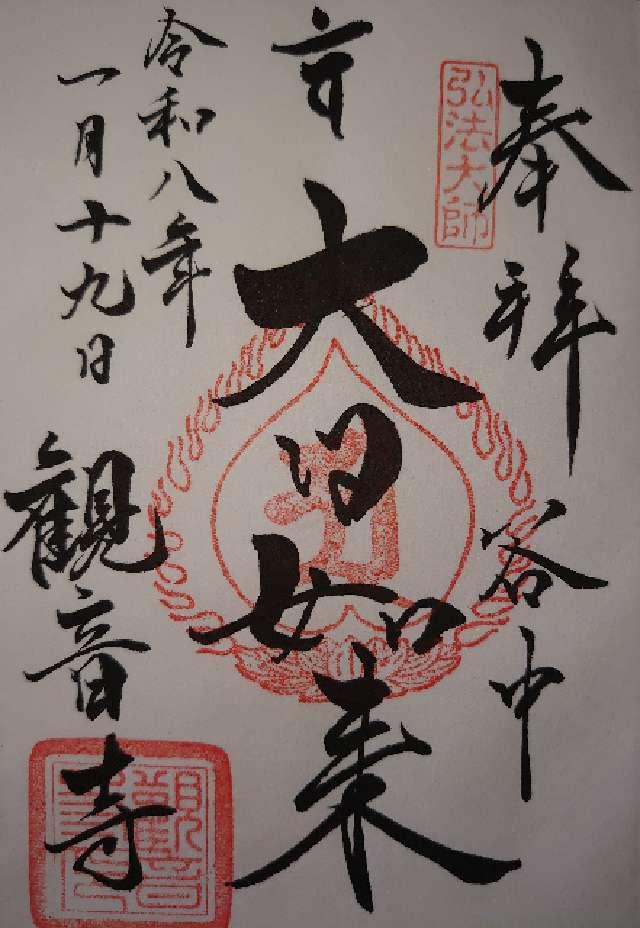 奉拝 谷中
弘法大師
大日如来
令和八年
一月十九日
観音寺
觀音